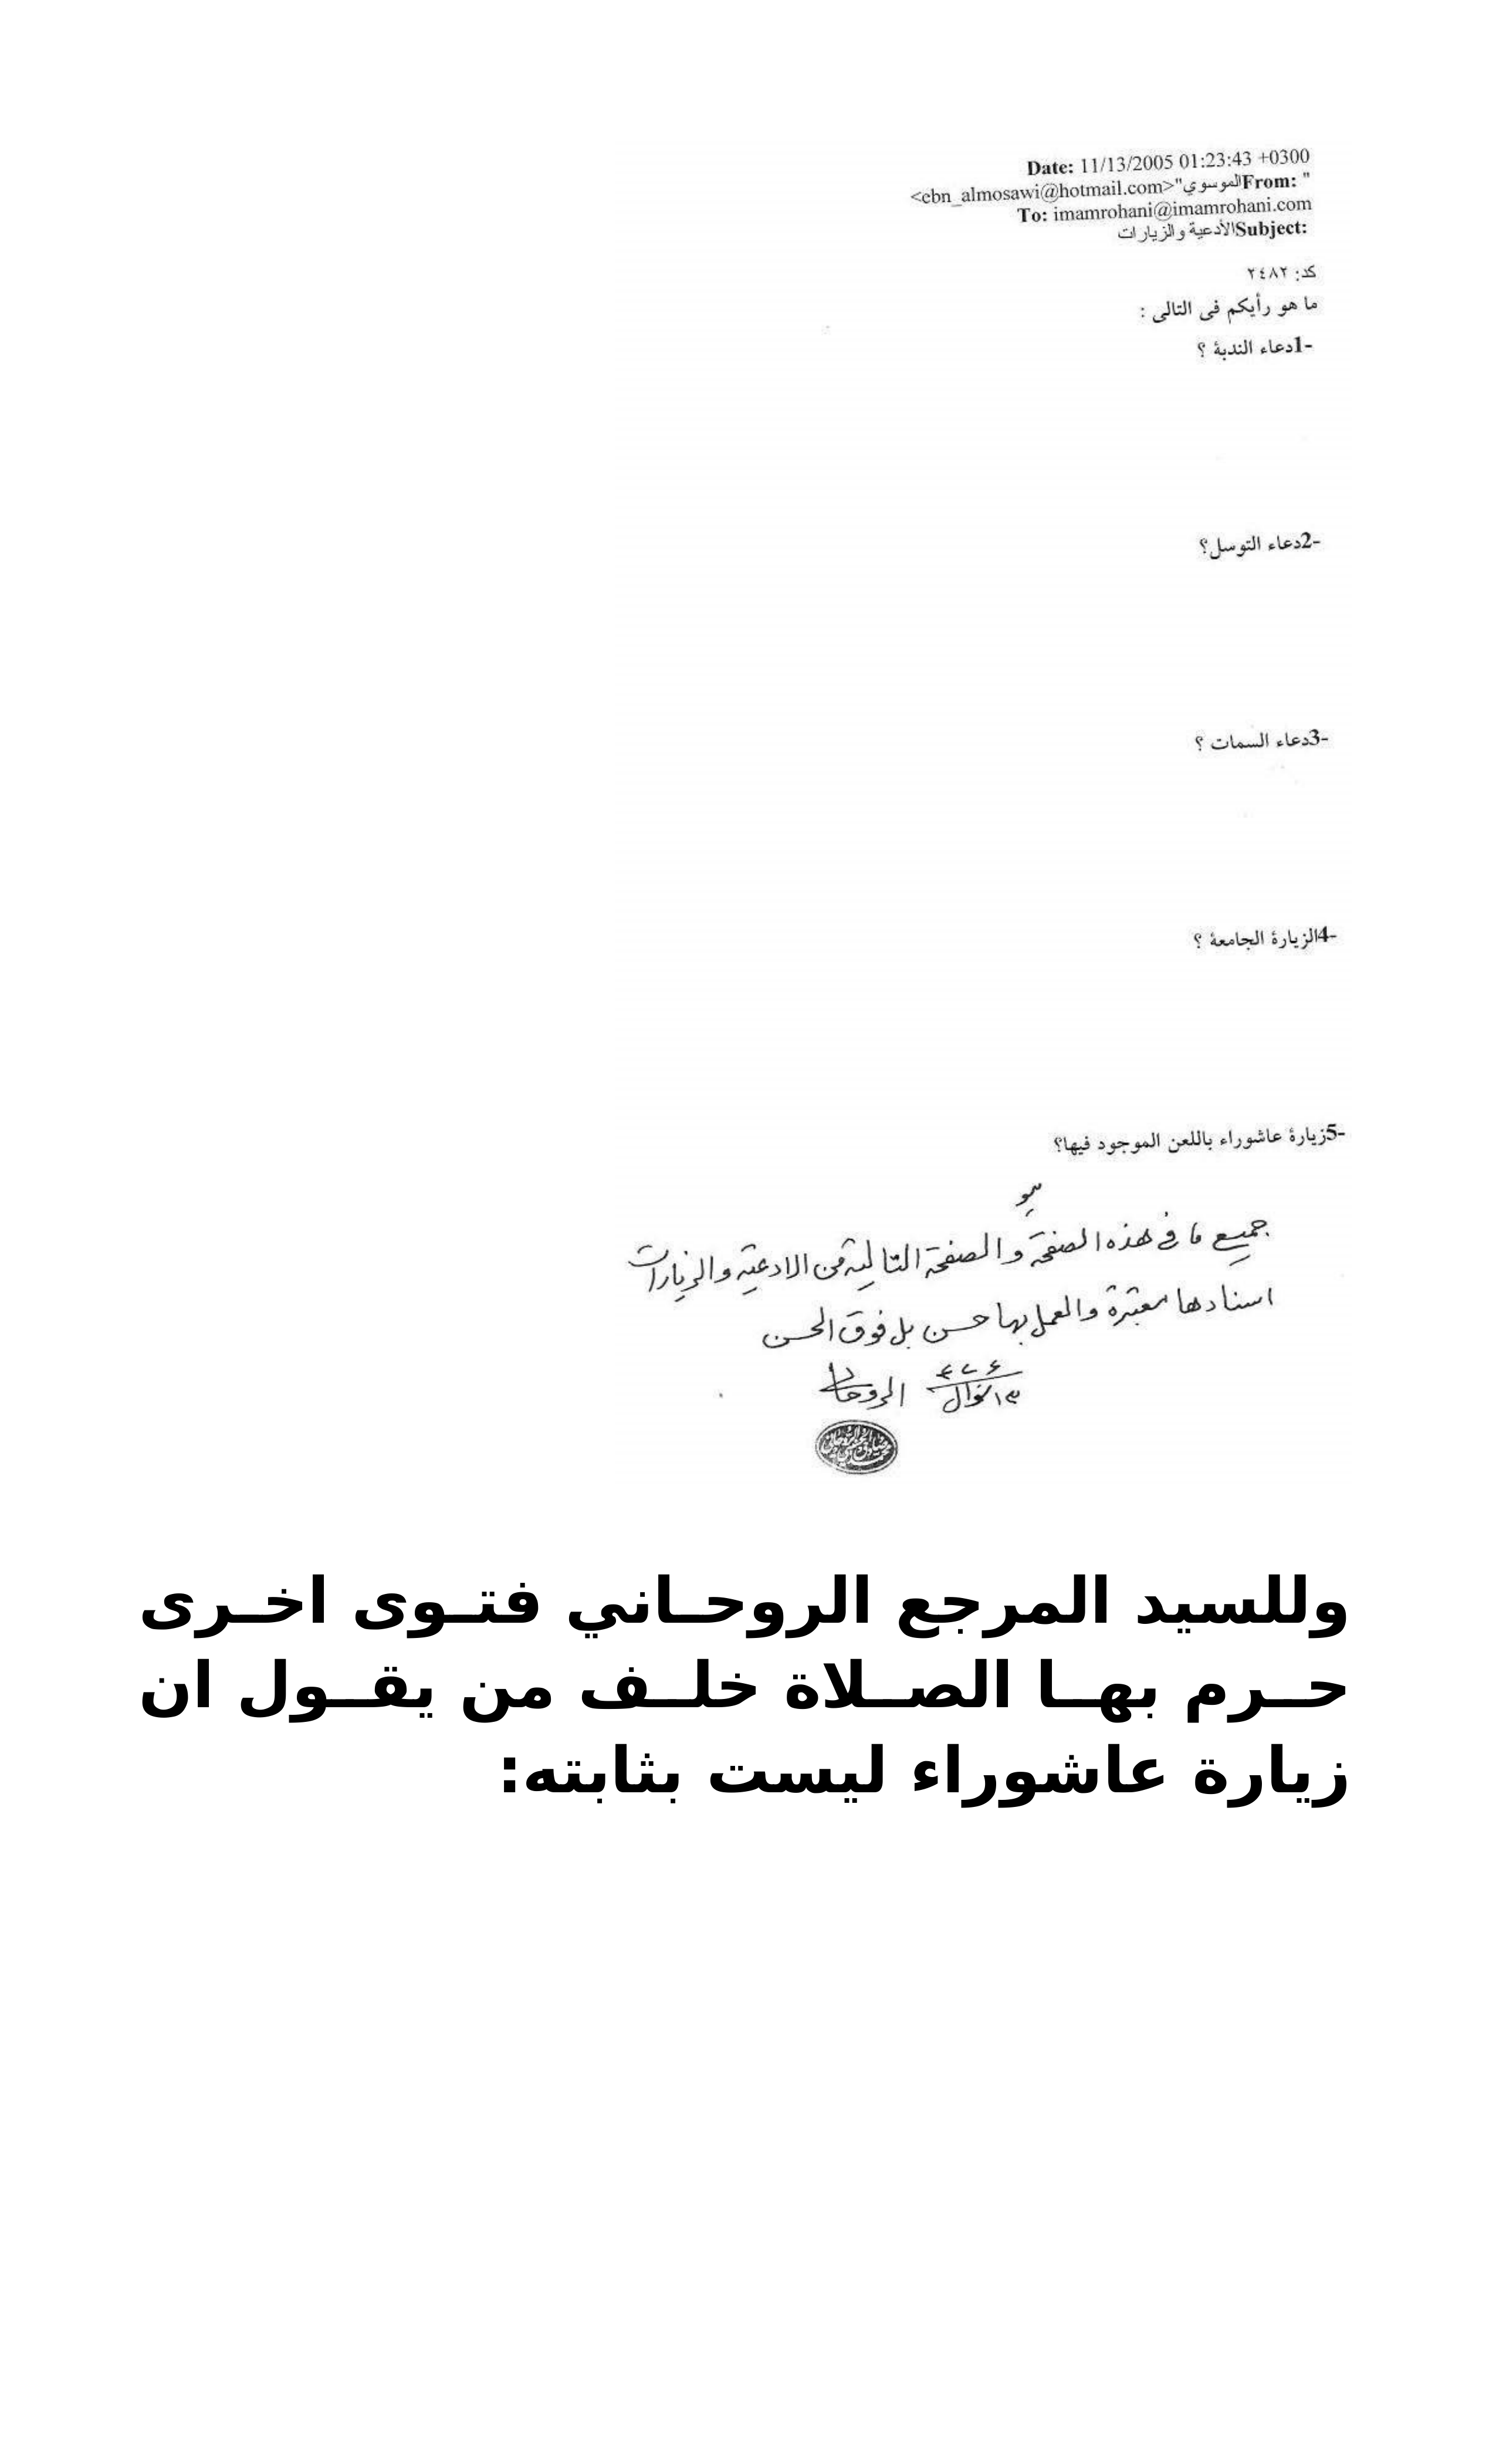 Date: 11/13/2005 01:23:43 +0300
From: "الموسوي" <ebn_almosawi@hotmail.com>
To: imamrohani@imamrohani.com
Subject: الأدعية والزيارات
كد: ٢٤٨٢
ما هو رأيكم فى التالى :
1-دعاء الندبة ؟
2-دعاء التوسل؟
3-دعاء السمات ؟
4-الزيارة الجامعة ؟
5-زيارة عاشوراء باللعن الموجود فيها؟
جميع ما في هذه الصفحة والصفحة التالية من الادعية والزيارات
اسنادها معتبرة والعمل بها حسن بل فوق الحسن
شوال الروحاني
محمد صادق الحسيني الروحاني
وللسيد المرجع الروحاني فتوى اخرى
حرم بها الصلاة خلف من يقول ان
زيارة عاشوراء ليست بثابته: